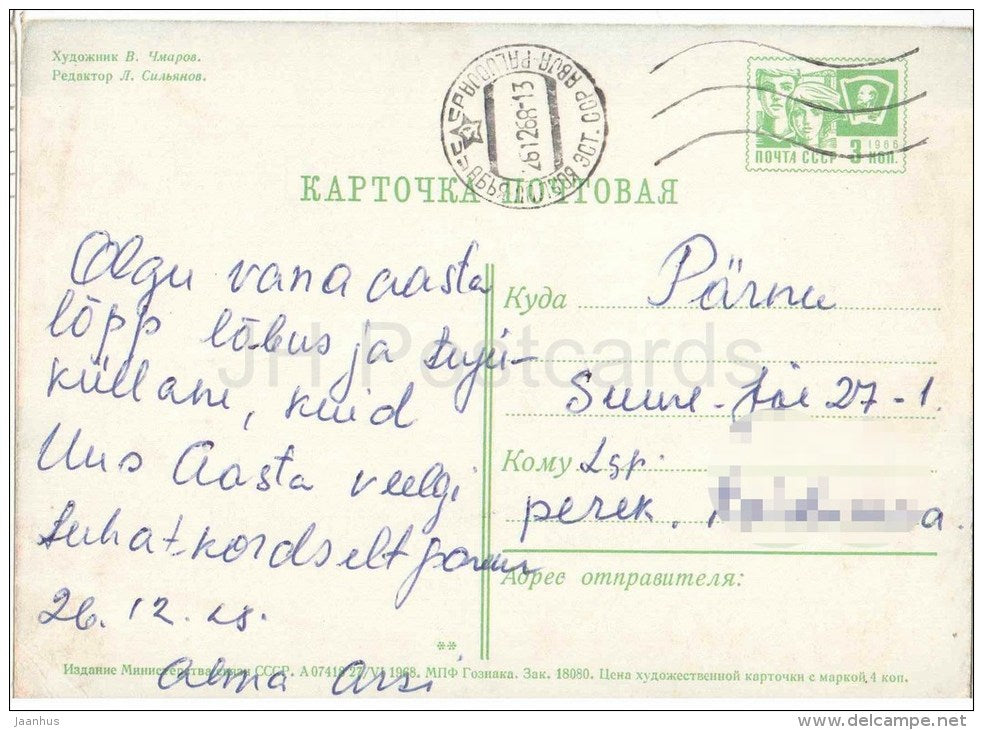 Художник В. Чмаров.
Редактор Л. Сильянов.
ABJA-PALUOJA
26 12 68-13
ПОЧТА СССР 3 КОП.
1966
КАРТОЧКА ПОЧТОВАЯ
Olgu vana aasta
lõpp lõbus ja tuju-
küllane, kuid
Uus Aasta veelgi
tuhat kordselt parem
26. 12. 68.
Alma Arsi
Куда Pärnu
Suure-Jõe 27-1.
Кому Lgp.
perek.
Адрес отправителя:
**
Издание Министерства связи СССР. А 07418 27/VI 1968. МПФ Гознака. Зак. 18080. Цена художественной карточки с маркой 4 коп.
JH Postcards
jaanhus
www.delcampe.net